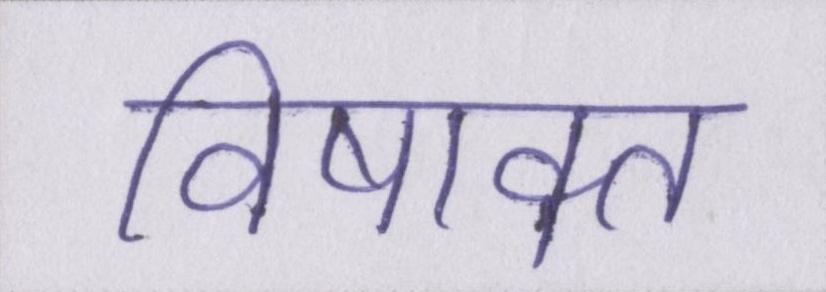 विषाक्त